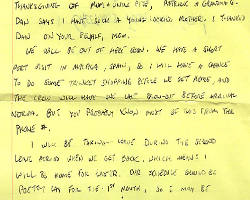 THANKSGIVING OF MOM + JUNE PITE, PATRICK + GRANDMA G.
DAN SAYS I HAVE SUCH A YOUNG LOOKING MOTHER. I THANKED
DAN ON YOUR BEHALF, MOM.
WE WILL BE OUT OF HERE SOON. WE HAVE A SHORT
PORT VISIT IN SPAIN, SO I WILL HAVE A CHANCE
TO DO SOME TRINKET SHOPPING BEFORE WE GET HOME, AND
THE CREW WILL HAVE ONE LAST BLOW-OUT BEFORE ARRIVAL
NORVA. BUT YOU PROBABLY KNOW MOST OF THIS FROM THE
PHONE
I WILL BE TAKING LEAVE DURING THE SECOND
LEAVE PERIOD WHEN WE GET BACK, WHICH MEANS I
WILL BE HOME FOR EASTER. OUR SCHEDULE SHOULD BE
PRETTY EASY FOR THE 1ST MONTH, SO I MAY BE